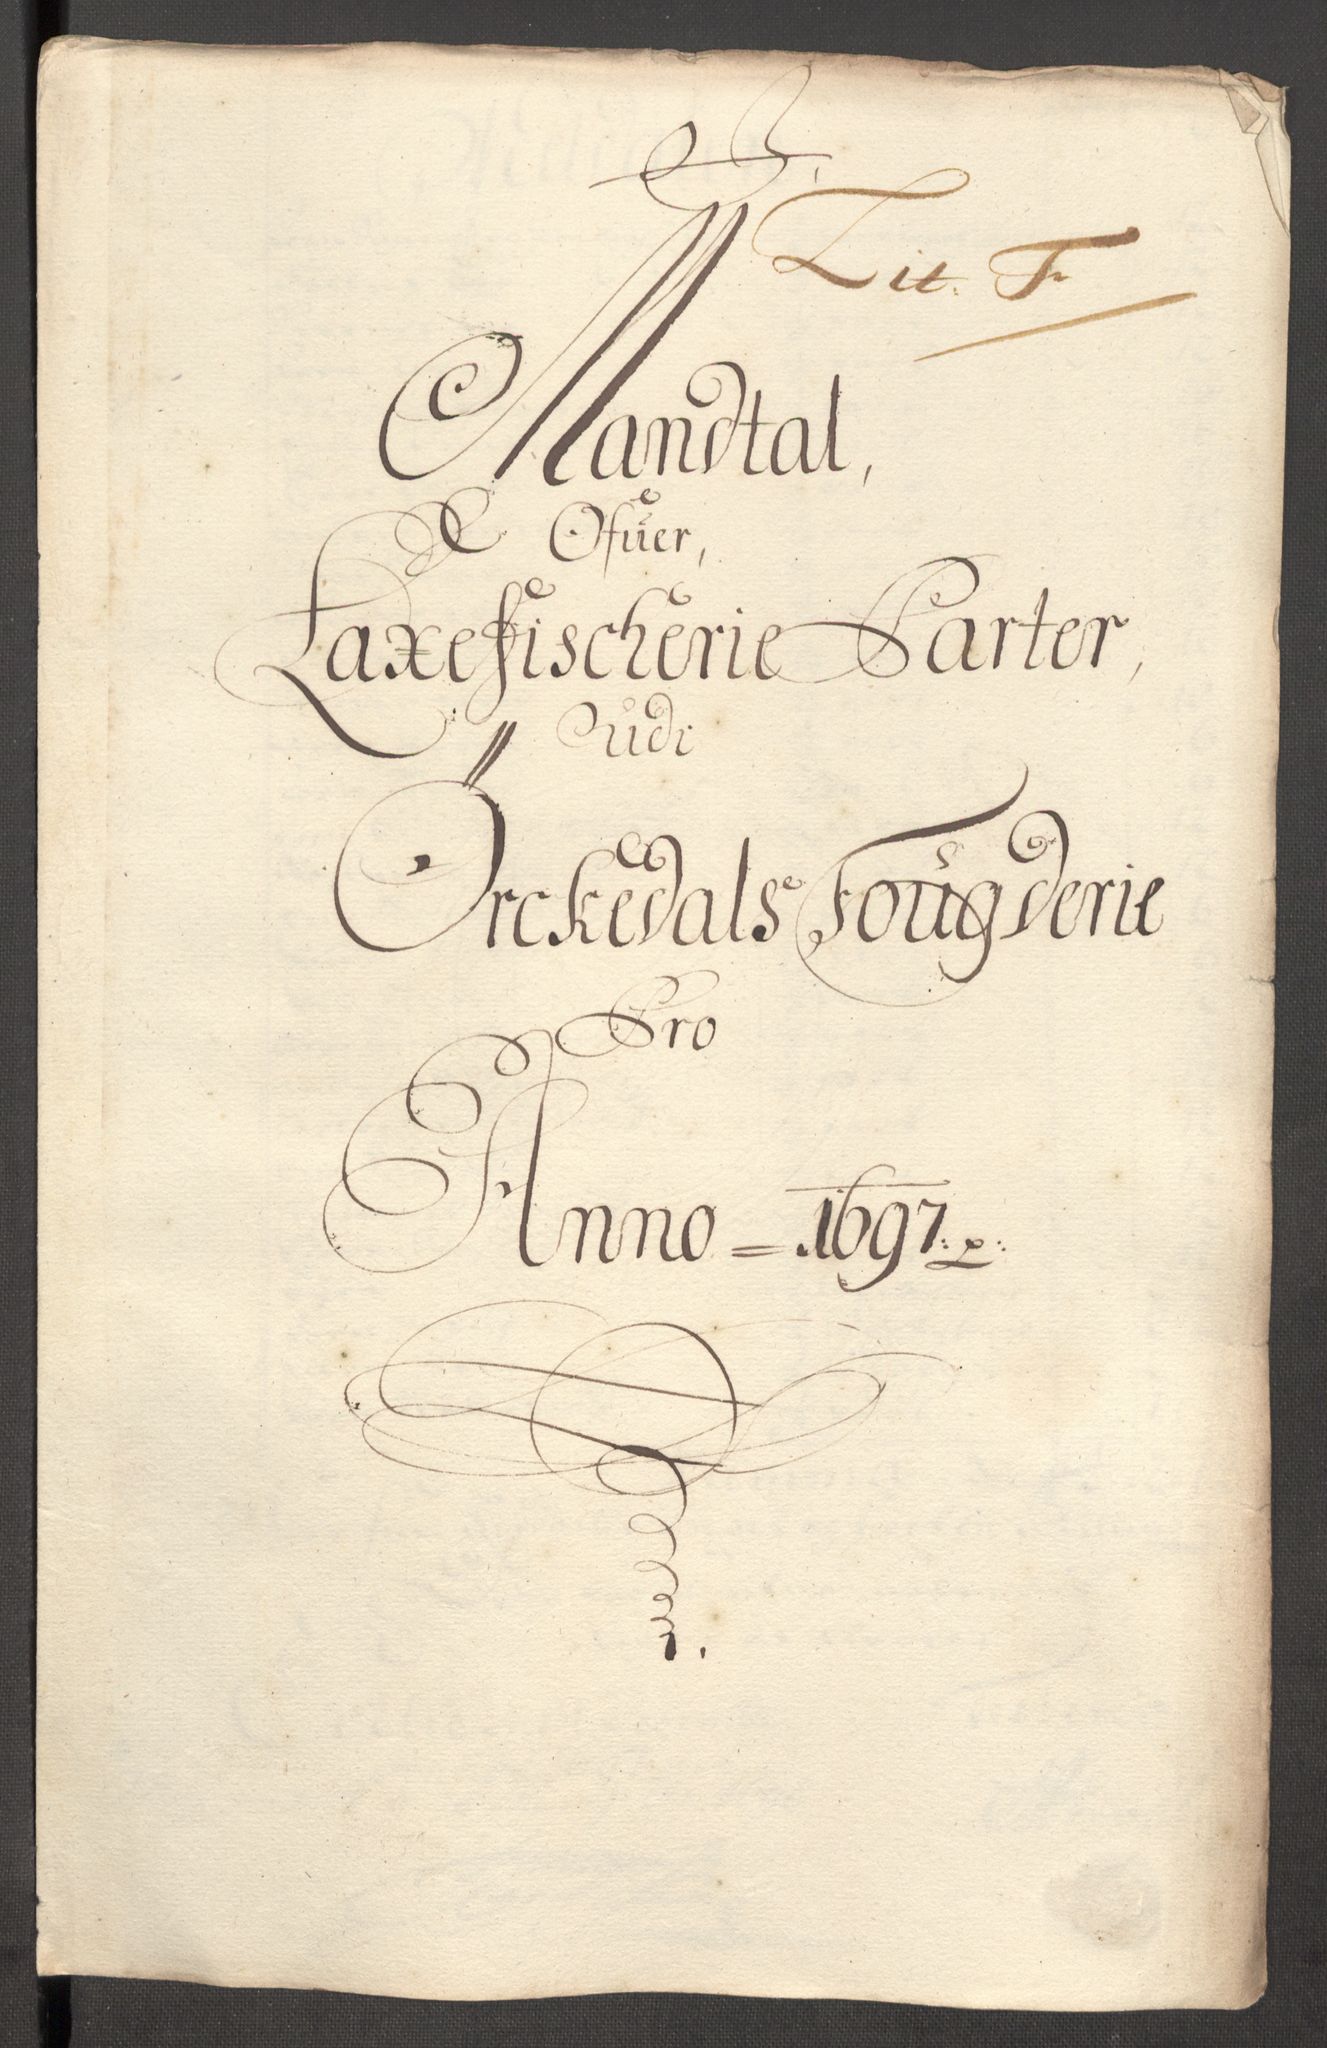 Lit. F
Mandtal,
Ofuer,
Laxefischerie Parter,
Udi
Örckedals Fougderie
Pro
Anno = 1697